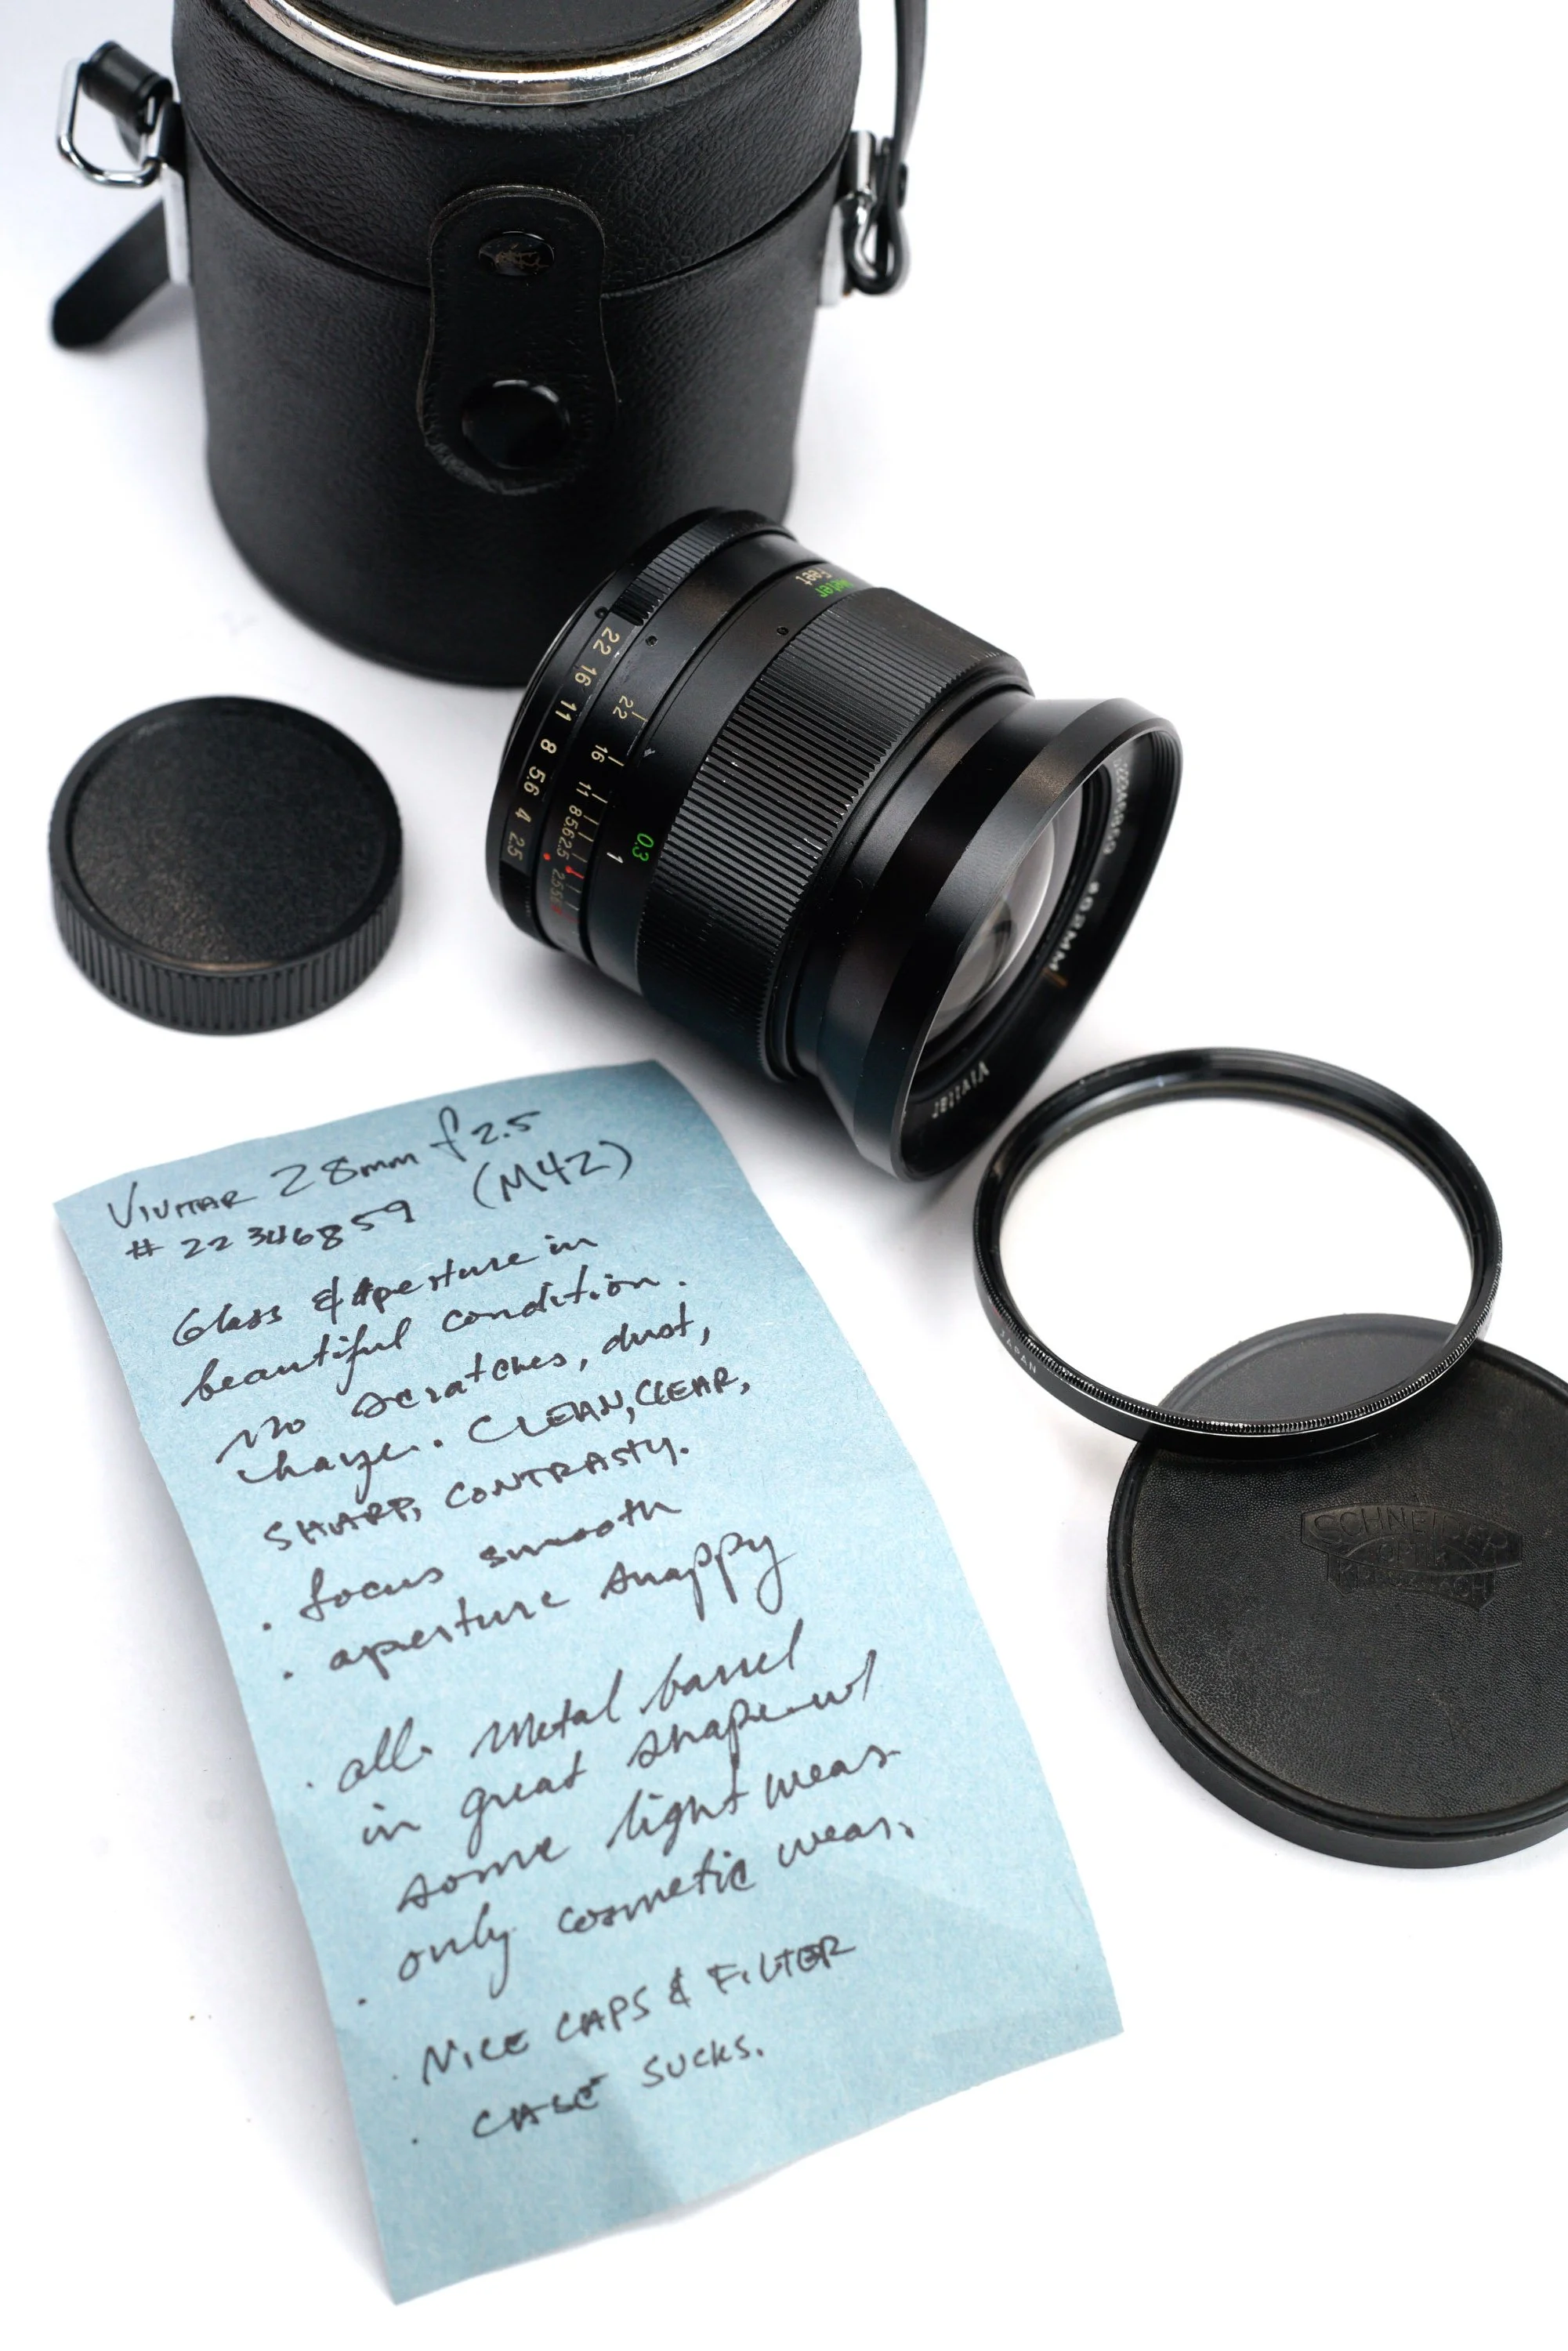 Meter
Feet
22 16 11 8 5.6 4 2.5
22 16 11 8 5.6 2.5
0.3
1
22346859
Vivitar
JAPAN
SCHNEIDER
OPTIK
KREUZNACH
VIVITAR 28mm f2.5
# 22346859 (M42)
Glass & Aperture in
beautiful condition.
no scratches, dust,
haze. CLEAN, CLEAR,
SHARP, CONTRASTY.
. focus smooth
. aperture snappy
. all metal barrel
in great shape w/
some light wear
. only cosmetic wear.
. NICE CAPS & FILTER
. CASE SUCKS.